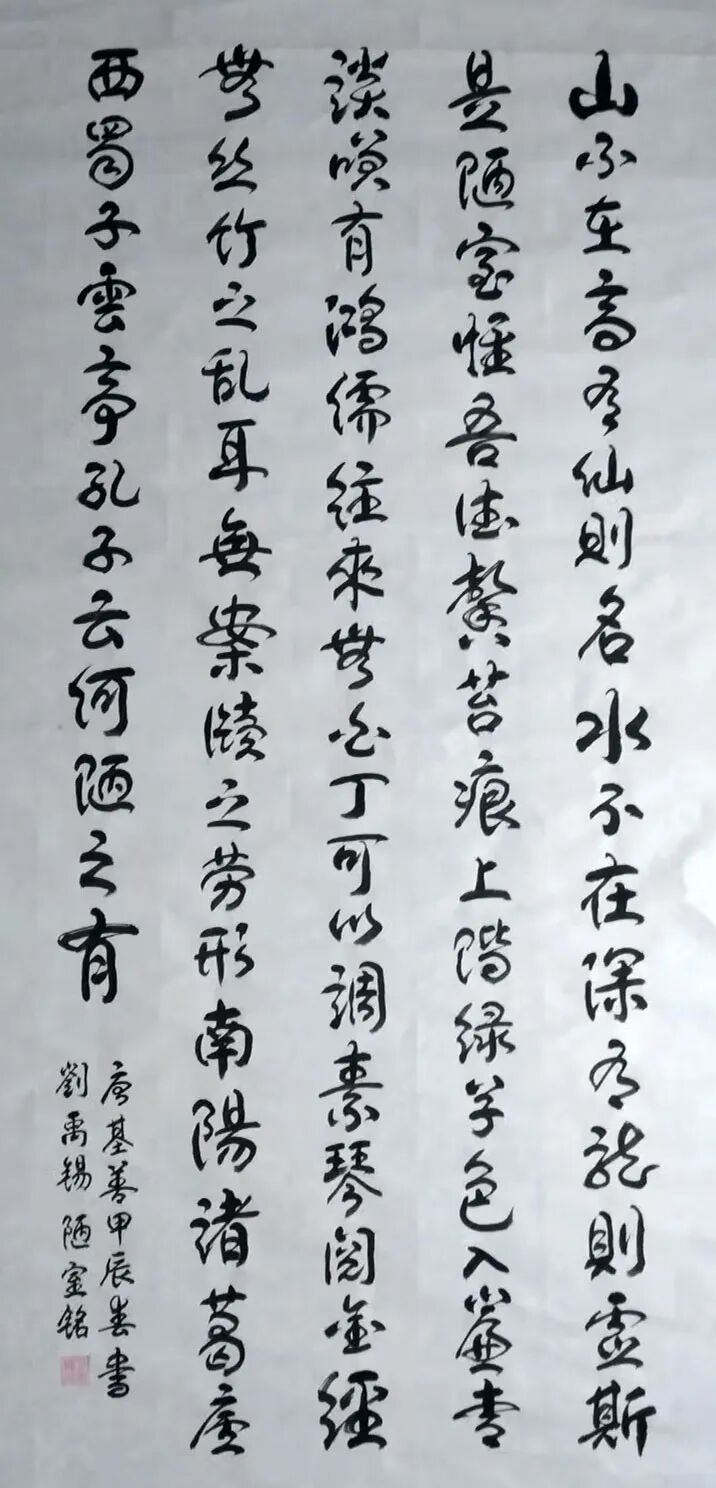 山不在高有仙則名水不在深有龍則靈斯
是陋室惟吾德馨苔痕上階緑草色入簾青
談笑有鴻儒往來無白丁可以調素琴閱金經
無丝竹之乱耳無案牘之劳形南陽諸葛廬
西蜀子雲亭孔子云何陋之有
唐基善甲辰春書
劉禹锡陋室銘